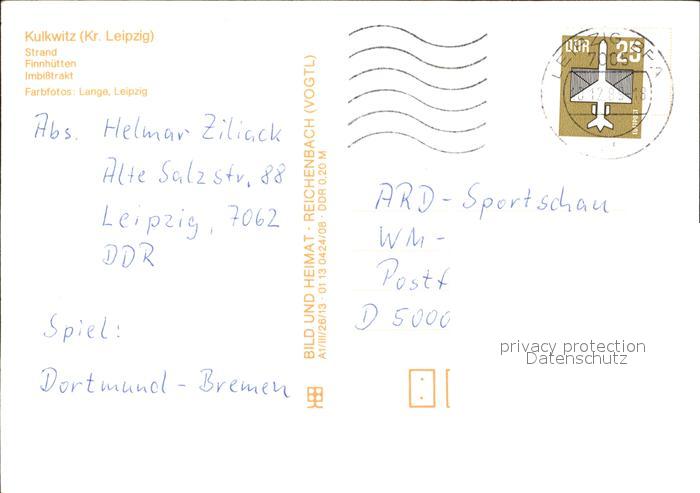 Kulkwitz (Kr. Leipzig)
Strand
Finnhütten
Imbißtrakt
Farbfotos: Lange, Leipzig
Abs. Helmar Ziliack
Alte Salzstr. 88
Leipzig, 7062
DDR
Spiel:
Dortmund - Bremen
BILD UND HEIMAT · REICHENBACH (VOGTL)
A1/III/26/13 · 01 13 0424/08 · DDR 0,20 M
DDR 25
7005
ARD - Sportschau
WM -
Postf
D 5000
privacy protection
Datenschutz